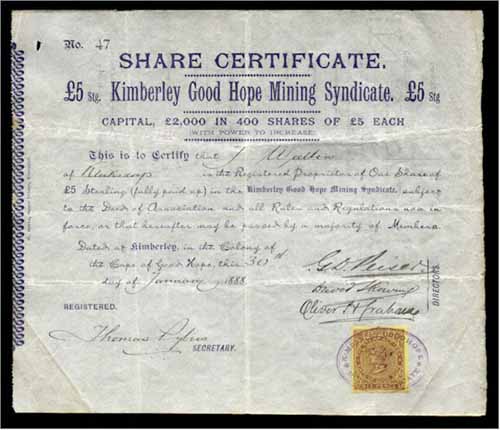 No. 47
SHARE CERTIFICATE.
£5 Stg. Kimberley Good Hope Mining Syndicate. £5 Stg
CAPITAL, £2,000 IN 400 SHARES OF £5 EACH
(WITH POWER TO INCREASE)
This is to Certify that
of is the Registered Proprietor of One Share of
£5 Sterling (fully paid up) in the Kimberley Good Hope Mining Syndicate, subject
to the Deed of Association and all Rules and Regulations now in
force, or that hereafter may be passed by a majority of Members.
Dated at Kimberley, in the Colony of
the Cape of Good Hope, this 30th
day of January 1888.
David
Oliver H Graham
DIRECTORS.
REGISTERED.
Thomas
SECRETARY.
GOOD HOPE